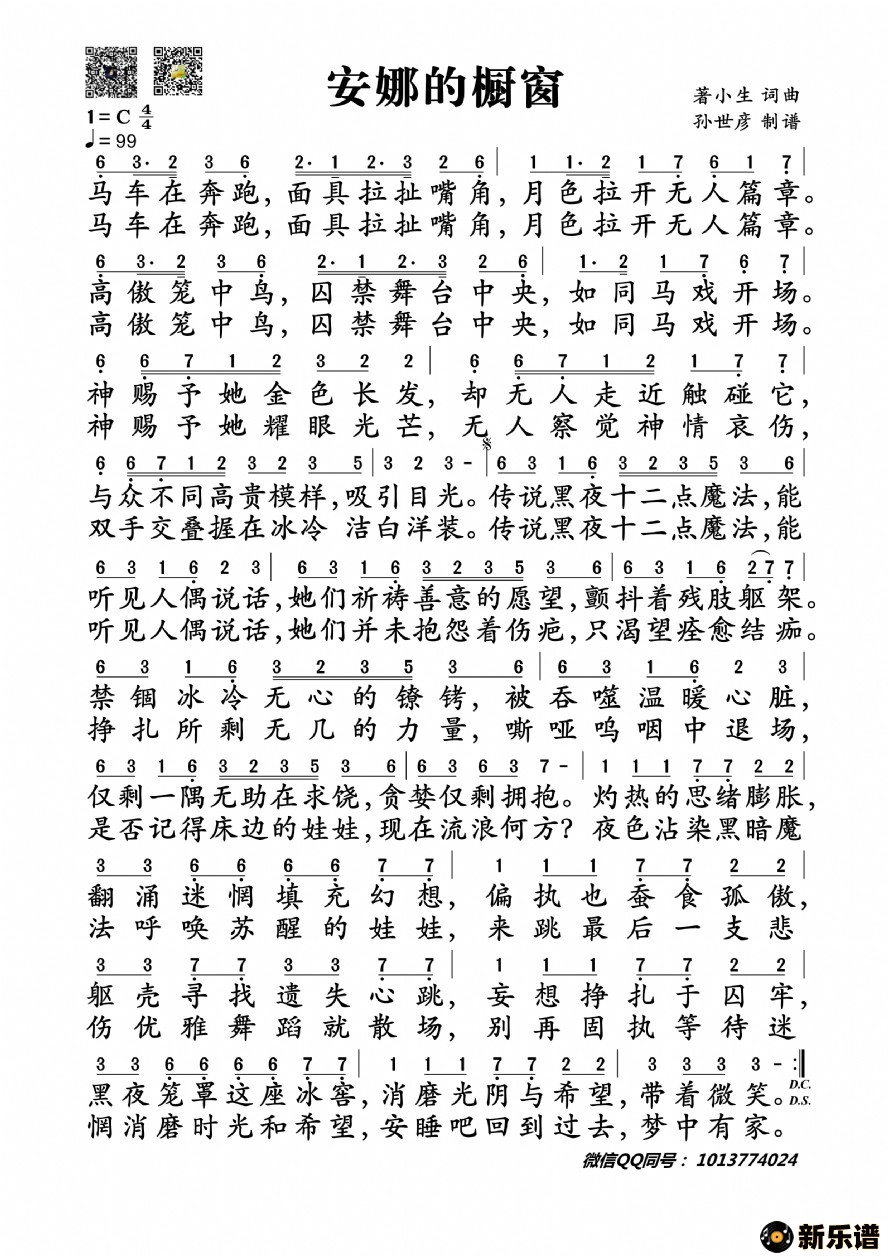 安娜的橱窗
著小生 词曲
孙世彦 制谱
1=C 4/4
♩=99
6 3· 2 3 6 2· 1 2· 3 2 6 | 1 1· 2 1 7 6 1 7 |
马车在奔跑，面具拉扯嘴角，月色拉开无人篇章。
马车在奔跑，面具拉扯嘴角，月色拉开无人篇章。
6 3· 2 3 6 2· 1 2· 3 2 6 | 1· 2 1 7 6 7 |
高傲笼中鸟，囚禁舞台中央，如同马戏开场。
高傲笼中鸟，囚禁舞台中央，如同马戏开场。
6 6 7 1 2 3 2 2 | 6 6 7 1 2 1 7 7 |
神赐予她金色长发，却无人走近触碰它，
神赐予她耀眼光芒，无人察觉神情哀伤，
6 6 7 1 2 3 2 3 5 | 3 2 3 - | 6 3 1 6 3 2 3 5 3 6 |
与众不同高贵模样，吸引目光。传说黑夜十二点魔法，能
双手交叠握在冰冷 洁白洋装。传说黑夜十二点魔法，能
6 3 1 6 2 3 | 6 3 1 6 3 2 3 5 3 6 | 6 3 1 6 2 7 7 |
听见人偶说话，她们祈祷善意的愿望，颤抖着残肢躯架。
听见人偶说话，她们并未抱怨着伤疤，只渴望痊愈结痂。
6 3 1 6 3 2 3 5 3 6 | 6 3 1 6 2 3 |
禁锢冰冷无心的镣铐，被吞噬温暖心脏，
挣扎所剩无几的力量，嘶哑呜咽中退场，
6 3 1 6 3 2 3 5 3 6 | 6 3 6 3 7 - | 1 1 1 7 7 2 2 |
仅剩一隅无助在求饶，贪婪仅剩拥抱。灼热的思绪膨胀，
是否记得床边的娃娃，现在流浪何方？夜色沾染黑暗魔
3 3 6 6 6 6 7 7 | 1 1 1 7 7 2 2 |
翻涌迷惘填充幻想，偏执也蚕食孤傲，
法呼唤苏醒的娃娃，来跳最后一支悲
3 3 7 7 3 3 7 7 | 1 1 1 7 7 2 2 |
躯壳寻找遗失心跳，妄想挣扎于囚牢，
伤优雅舞蹈就散场，别再固执等待迷
3 3 6 6 6 6 7 7 | 1 1 1 7 7 2 2 | 3 3 3 3 - :‖
黑夜笼罩这座冰窖，消磨光阴与希望，带着微笑。D.C.
D.S.
惘消磨时光和希望，安睡吧回到过去，梦中有家。
微信QQ同号：1013774024
新乐谱